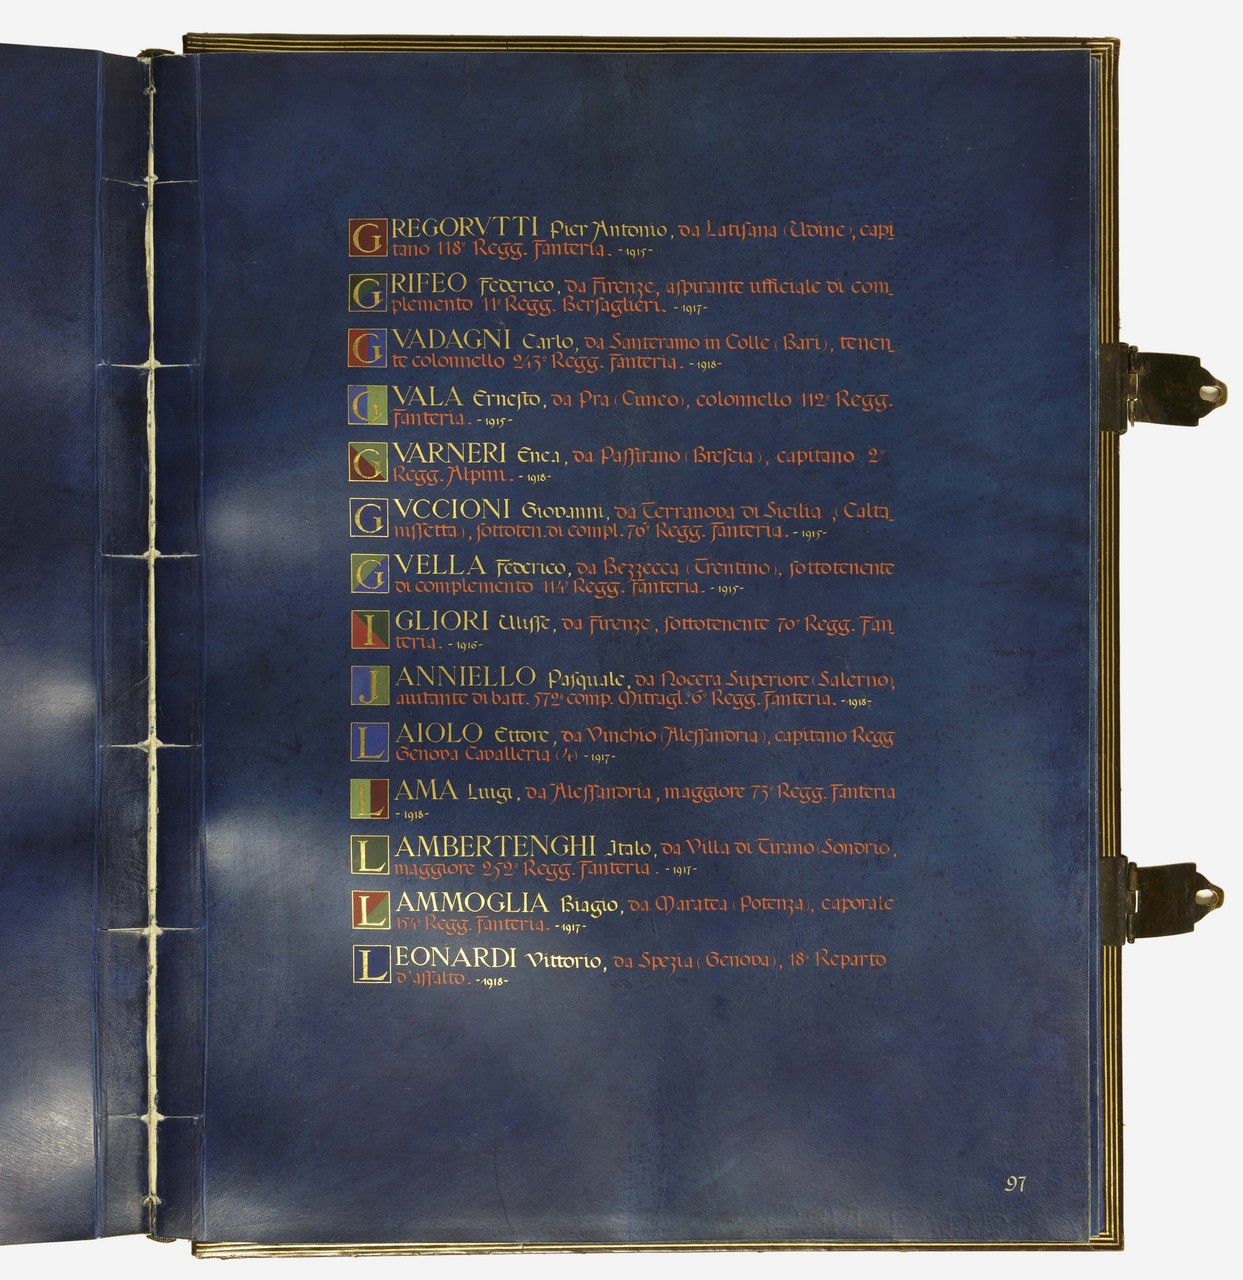 GREGORVTTI Pier Antonio, da Latisana (Udine), capi
tano 118° Regg. Fanteria. -1915-
GRIFEO Federico, da Firenze, aspirante ufficiale di com_
plemento 11° Regg. Bersaglieri. -1917-
GVADAGNI Carlo, da Santeramo in Colle (Bari), tenen_
te colonnello 243° Regg. Fanteria. -1918-
GVALA Ernesto, da Pra (Cuneo), colonnello 112° Regg.
Fanteria. -1915-
GVARNERI Enea, da Passirano (Brescia), capitano 2°
Regg. Alpini. -1918-
GVCCIONI Giovanni, da Terranova di Sicilia (Calta_
nissetta), sottoten. di compl. 76° Regg. Fanteria. -1915-
GVELLA Federico, da Bezzecca (Trentino), sottotenente
di complemento 114° Regg. Fanteria. -1915-
IGLIORI Ulisse, da Firenze, sottotenente 70° Regg. Fan_
teria. -1916-
JANNIELLO Pasquale, da Nocera Superiore (Salerno),
aiutante di batt. 572° comp. Mitragl. 6° Regg. Fanteria. -1918-
LAIOLO Ettore, da Vinchio (Alessandria), capitano Regg
Genova Cavalleria (4°) -1917-
LAMA Luigi, da Alessandria, maggiore 73° Regg. Fanteria
-1918-
LAMBERTENGHI Italo, da Villa di Tirano (Sondrio,
maggiore 252° Regg. Fanteria. -1917-
LAMMOGLIA Biagio, da Maratea (Potenza), caporale
154° Regg. Fanteria. -1917-
LEONARDI Vittorio, da Spezia (Genova), 18° Reparto
d'assalto. -1918-
97